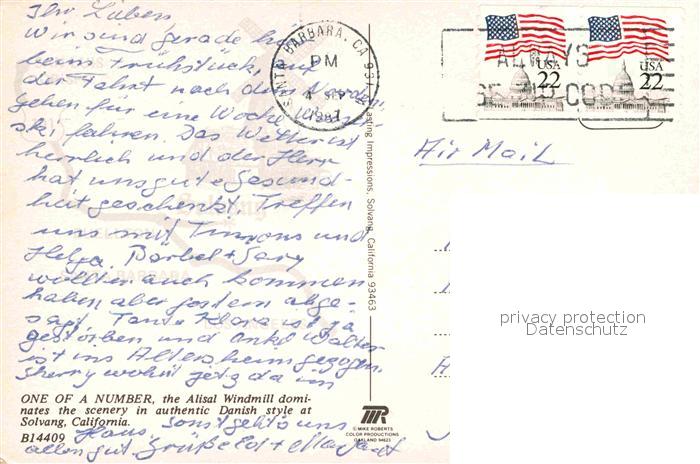 Ihr Lieben
Wir sind gerade
beim Frühstück, auf
der Fahrt nach dem Norden
gehen für eine Woche
ski fahren. Das Wetter ist
herrlich und der Herr
hat uns gute Gesund-
heit geschenkt. Treffen
uns mit Timons und
Helga. Bärbel + Gary
wollten auch kommen
haben aber gestern abge-
sagt. Tante Klara ist ja
gestorben und Onkel Walter
ist ins Altersheim gezogen.
Sherry wohnt jetz da im
Haus, sonst gehts uns
allen gut. Grüße
ONE OF A NUMBER, the Alisal Windmill domi-
nates the scenery in authentic Danish style at
Solvang, California.
B14409
SANTA BARBARA, CA 931
PM
4 SEP
1987
Lasting Impressions, Solvang, California 93463
MR
© MIKE ROBERTS
COLOR PRODUCTIONS
OAKLAND 94623
USA
22
USA
22
ALWAYS
USE ZIP CODE
Air Mail
privacy protection
Datenschutz